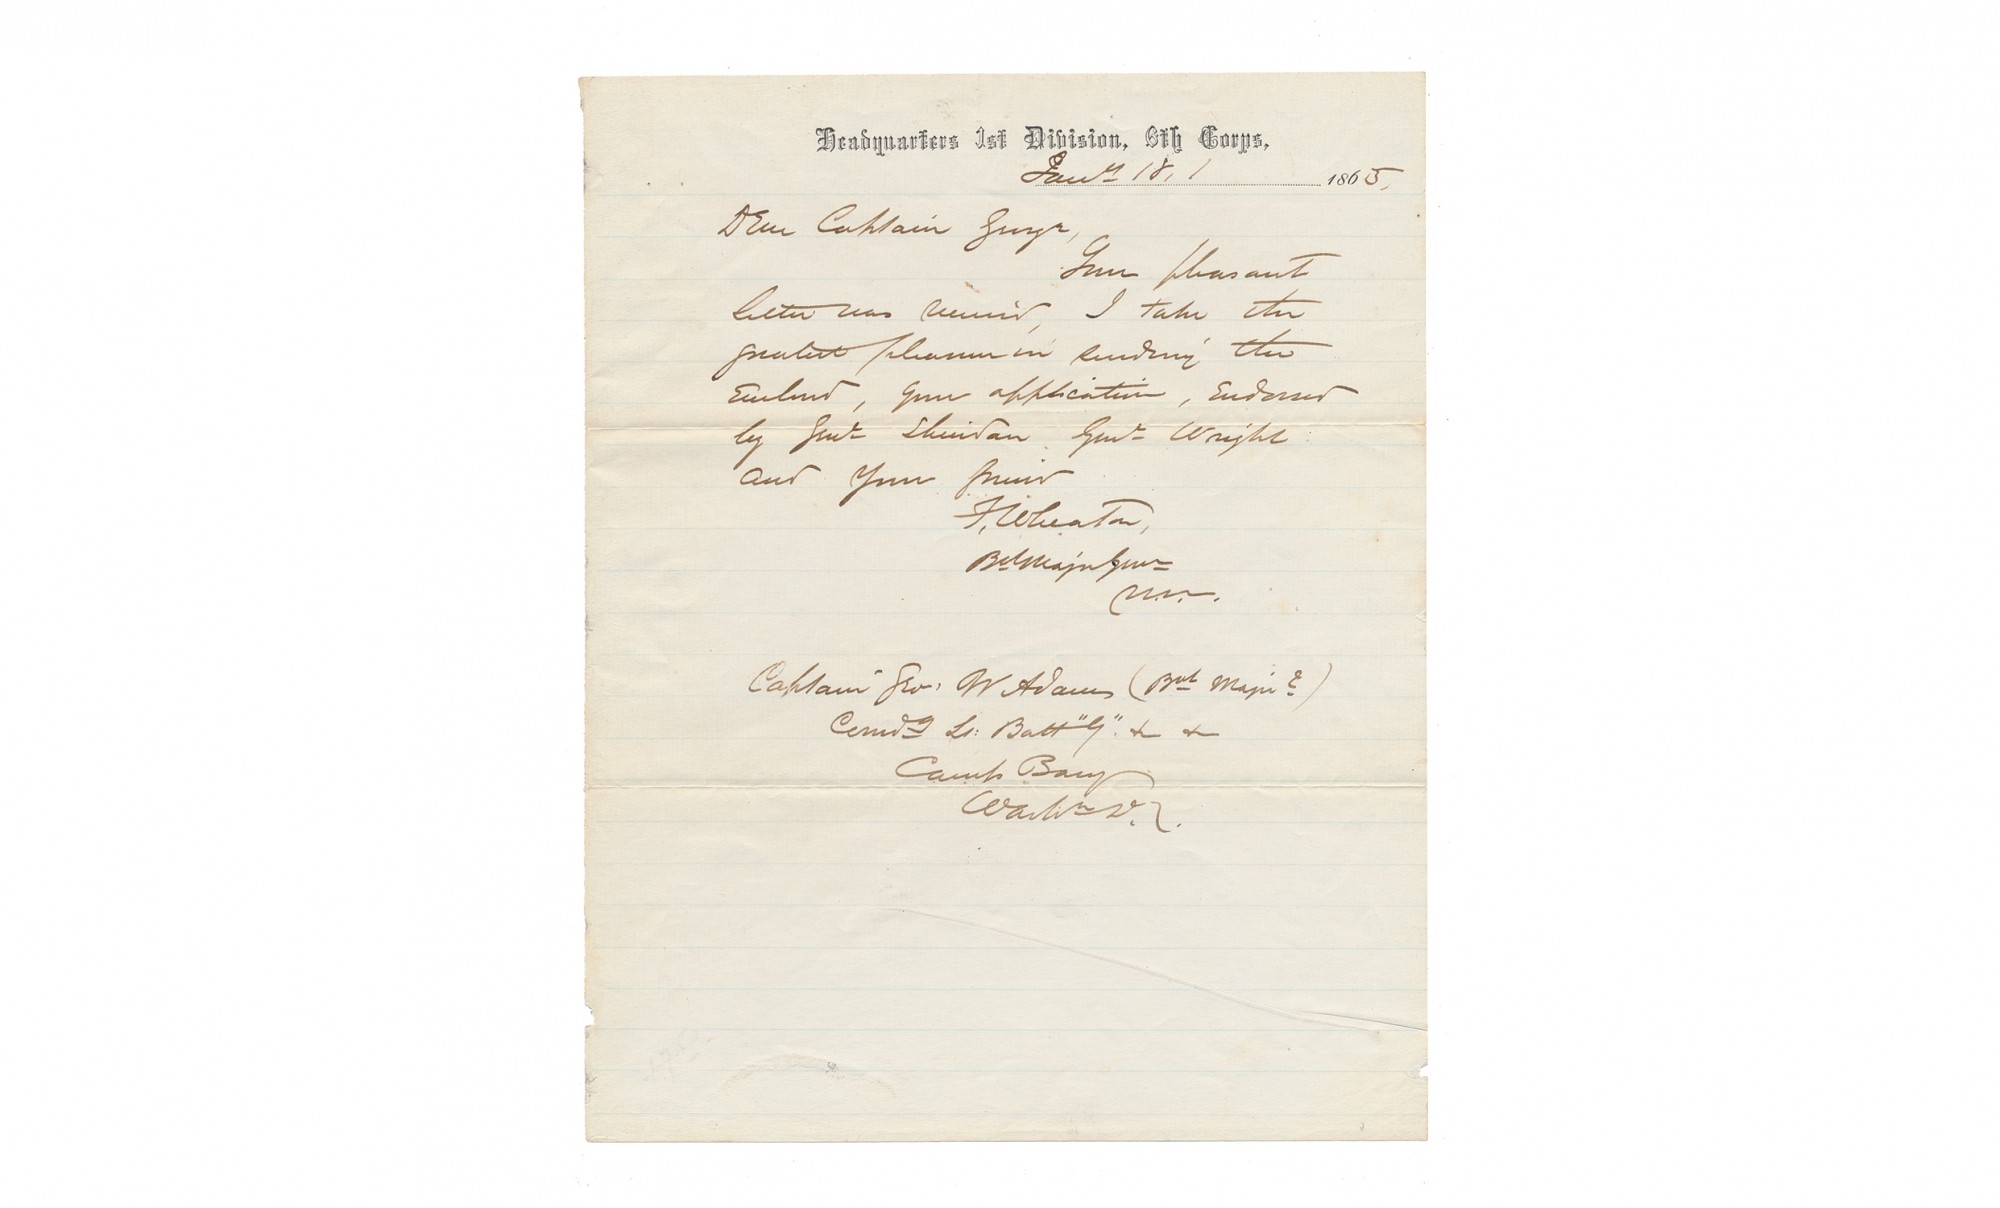 Headquarters 1st Division, 6th Corps,
Jany 18, 1865.
Dear Captain George,
Your pleasant
letter was received, I take the
greatest pleasure in sending the
Enclosed, your application, Endorsed
by Genl Sheridan Genl Wright
and Your friend
F. Wheaton,
Bvt Major Genl
Captain Geo: W Adams (Bvt Major &)
Comdg Lt: Batt "G" & &
Camp Barry
Washn D.C.